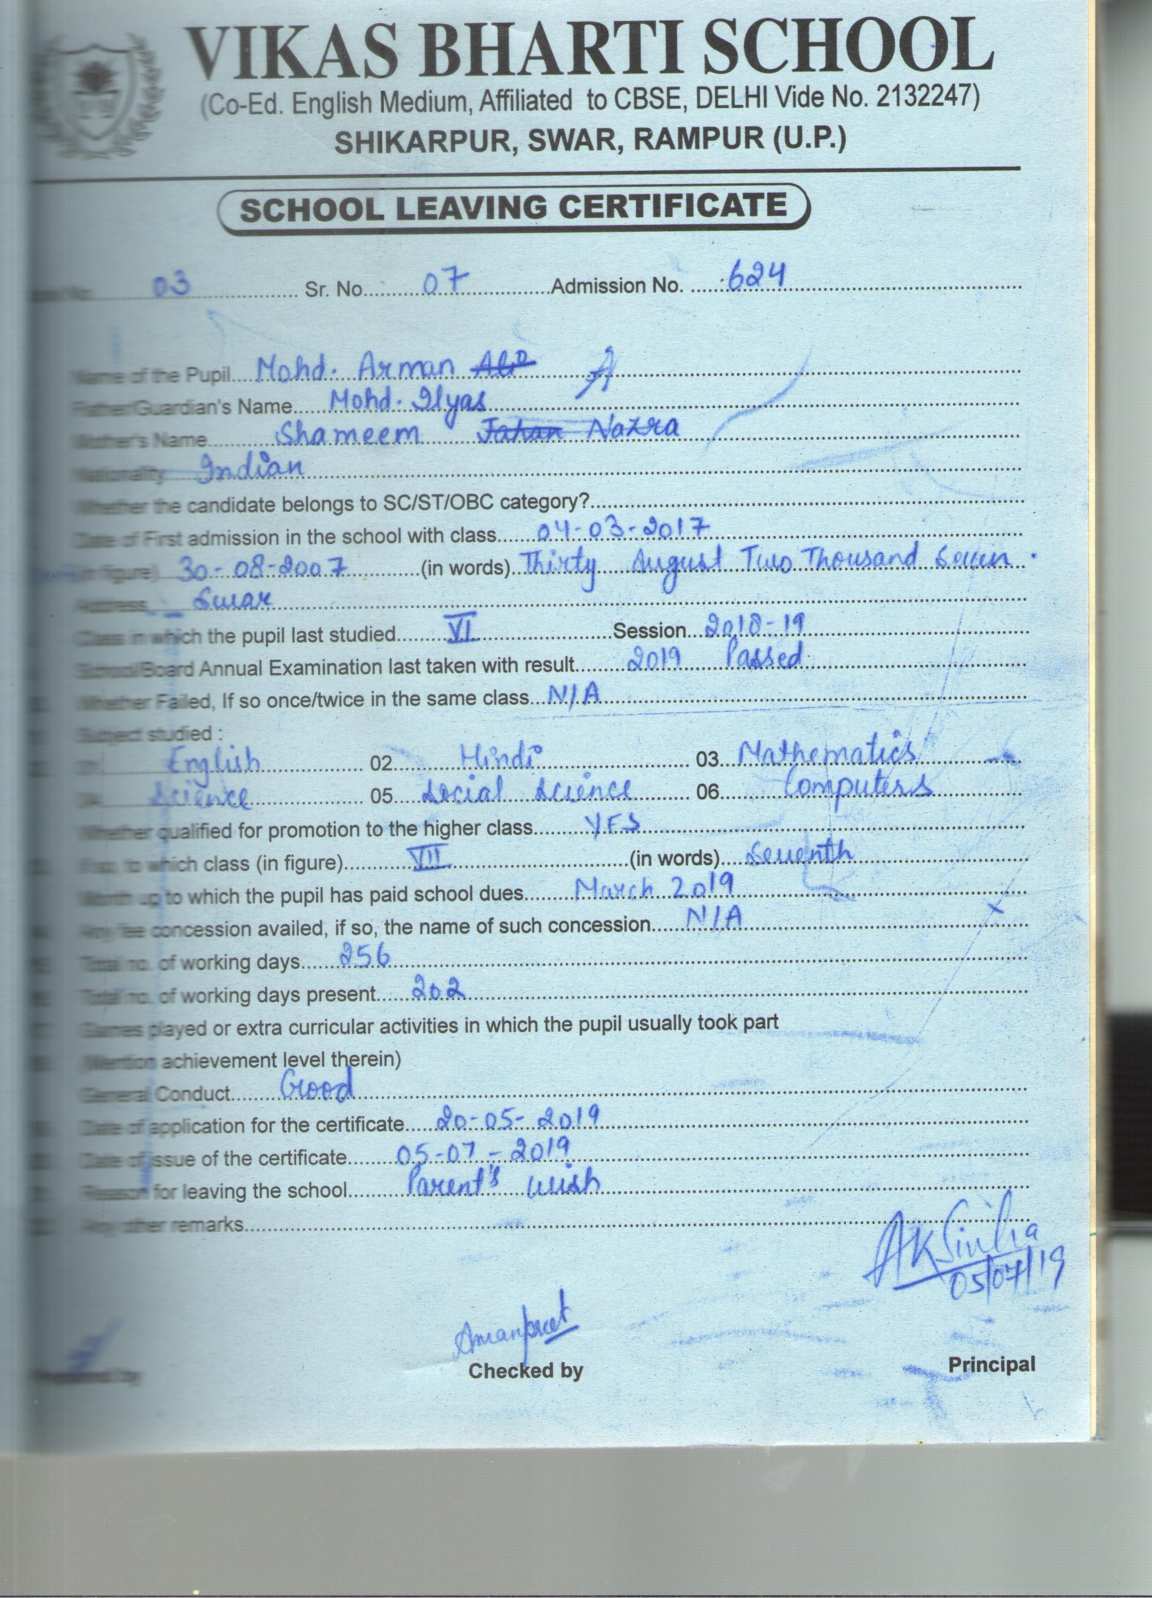 VIKAS BHARTI SCHOOL
(Co-Ed. English Medium, Affiliated to CBSE, DELHI Vide No. 2132247)
SHIKARPUR, SWAR, RAMPUR (U.P.)
SCHOOL LEAVING CERTIFICATE
03 Sr. No. 07 Admission No. 624
Name of the Pupil Mohd. Arman
Father/Guardian's Name Mohd. Ilyas
Mother's Name Shameem Jahan Nazra
Nationality Indian
Whether the candidate belongs to SC/ST/OBC category?
Date of First admission in the school with class 04-03-2017
(in figure) 30-08-2007 (in words) Thirty August Two Thousand Seven.
Address Swar
Class in which the pupil last studied VI Session 2018-19
School/Board Annual Examination last taken with result 2019 Passed
Whether Failed, If so once/twice in the same class N/A
Subject studied :
English 02 Hindi 03 Mathematics
Science 05 Social Science 06 Computers
Whether qualified for promotion to the higher class YES
to which class (in figure) VII (in words) Seventh
Month up to which the pupil has paid school dues March 2019
Any fee concession availed, if so, the name of such concession N/A
Total no. of working days 256
Total no. of working days present 202
Games played or extra curricular activities in which the pupil usually took part
(Mention achievement level therein)
General Conduct Good
Date of application for the certificate 20-05-2019
Date of issue of the certificate 05-07-2019
Reason for leaving the school Parent's wish
Any other remarks
AKSinha
05/07/19
Amanpreet
Checked by Principal